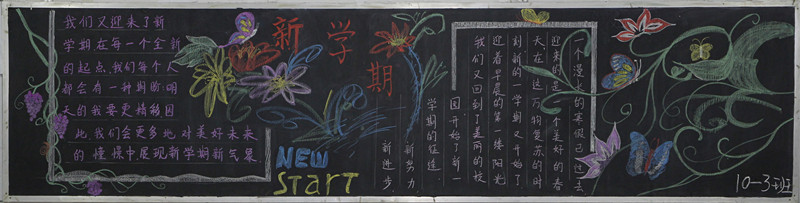 我们又迎来了新
学期在每一个全新
的起点,我们每个人
都会有一种期盼明
天的我要更精彩因
此我们会更多地对美好未来
的憧憬中展现新学期新气象
新学期
NEW
START
一个漫长的寒假已过去
迎来的是一个美好的春
天在这万物复苏的时
刻新的一学期又开始了
迎着早晨的第一缕阳光
我们又回到了美丽的校
园,开始了新一
学期的征途
新努力
新进步
10-3班